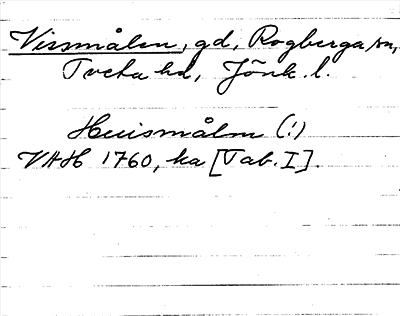 Vismålen, gd, Rogberga sn,
Tveta hd, Jönk. l.
Huismålm (!)
VAH 1760, ka [Tab. I].